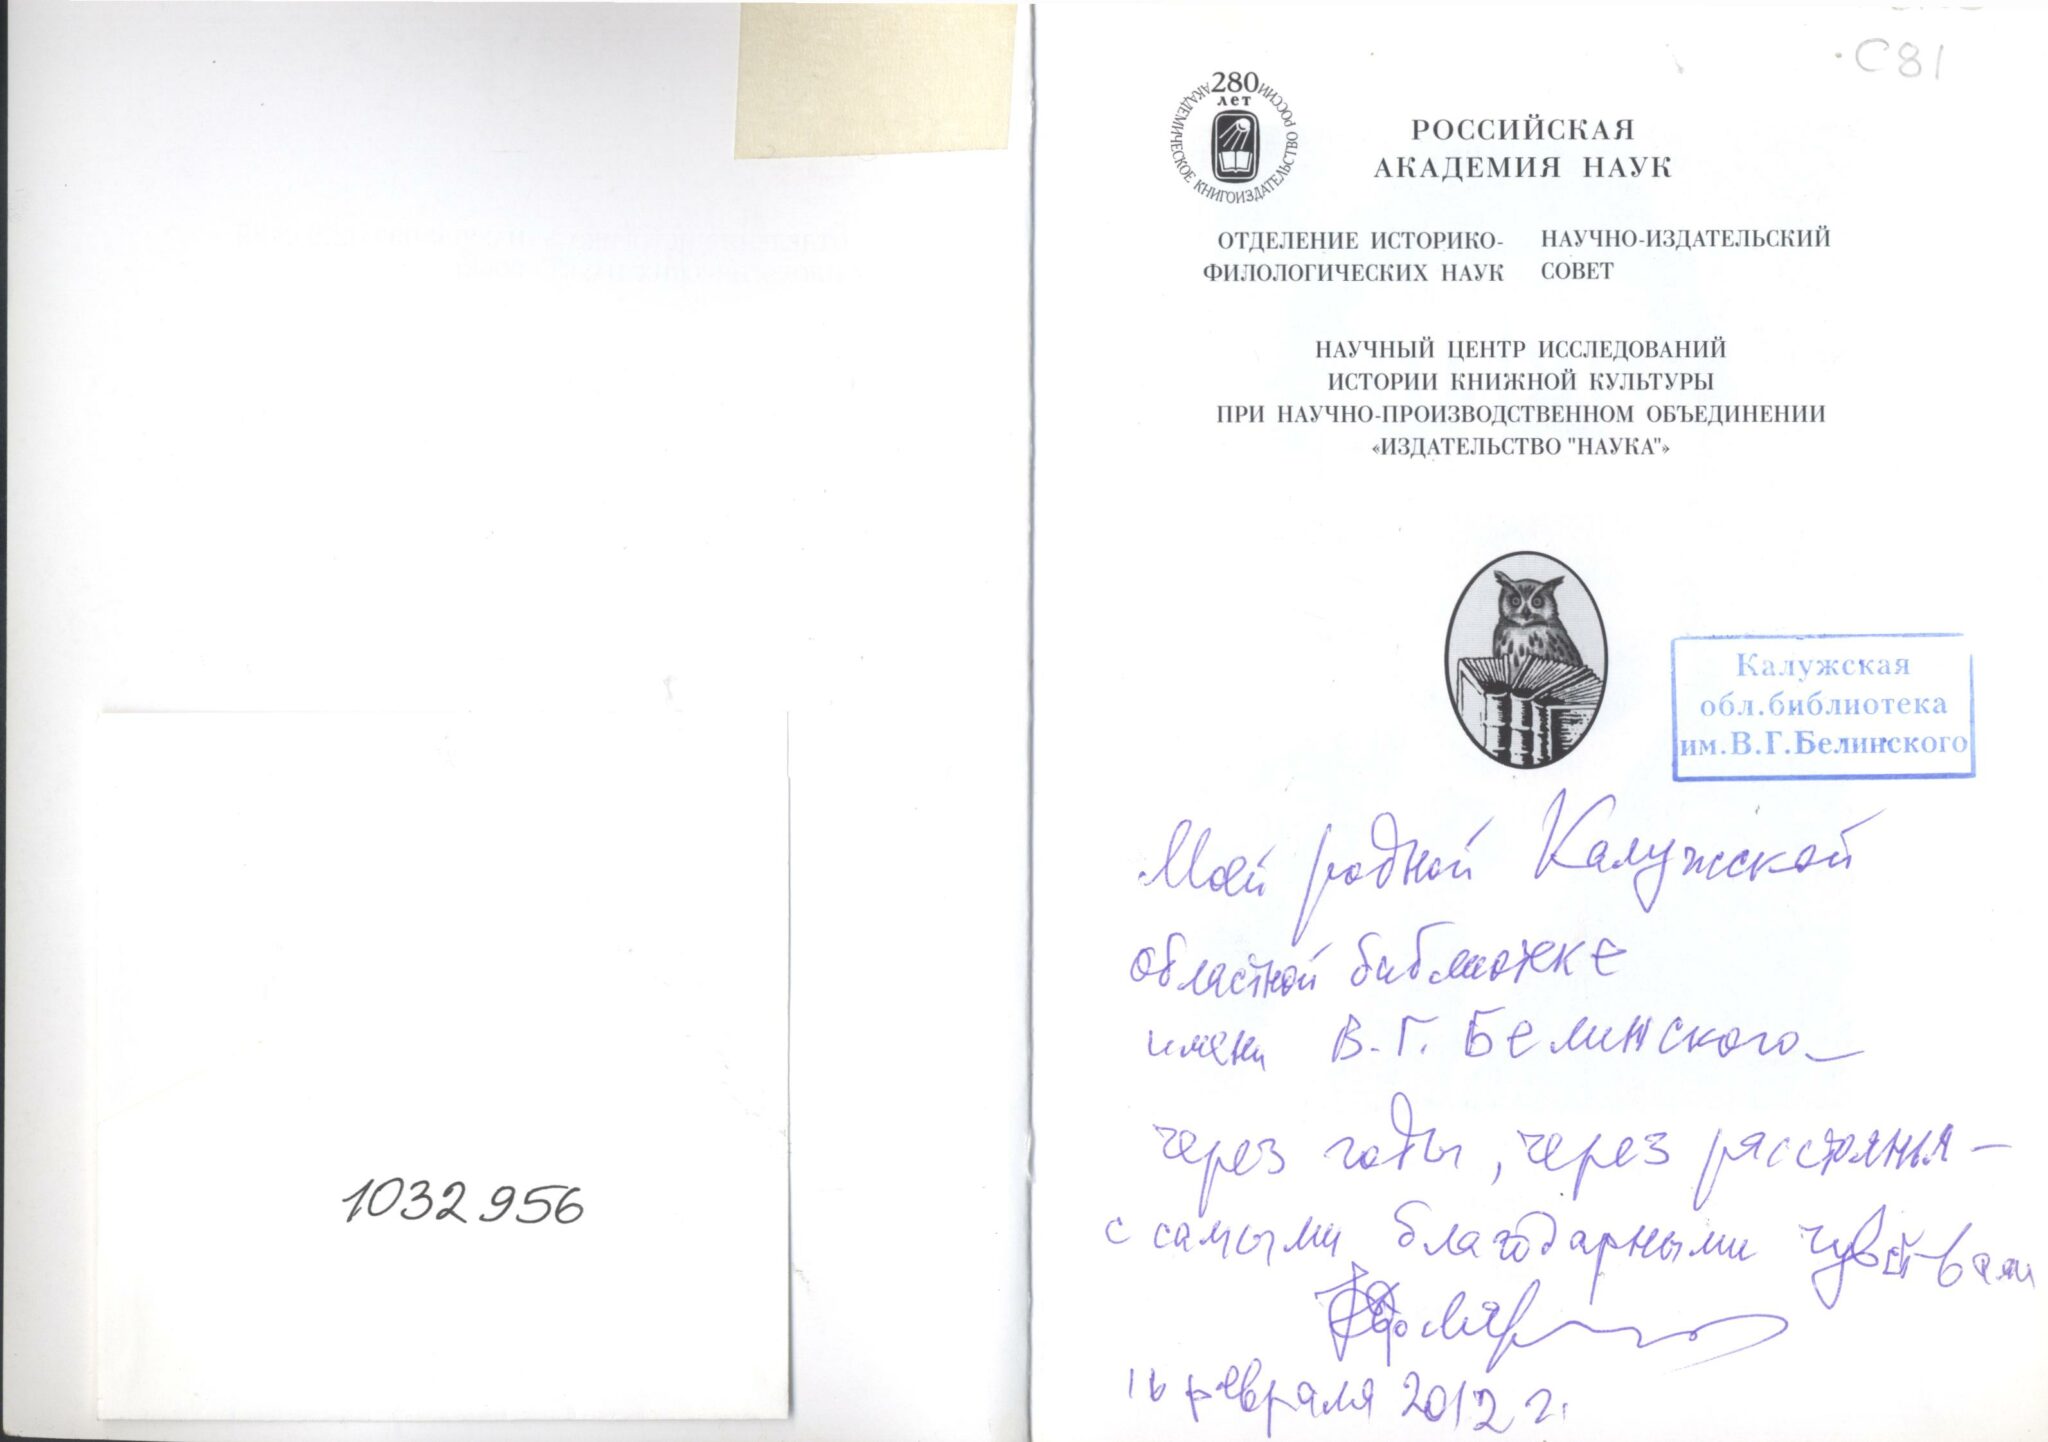 1032956
С81
280
лет
АКАДЕМИЧЕСКОЕ КНИГОИЗДАТЕЛЬСТВО РОССИИ
РОССИЙСКАЯ
АКАДЕМИЯ НАУК
ОТДЕЛЕНИЕ ИСТОРИКО-
ФИЛОЛОГИЧЕСКИХ НАУК
НАУЧНО-ИЗДАТЕЛЬСКИЙ
СОВЕТ
НАУЧНЫЙ ЦЕНТР ИССЛЕДОВАНИЙ
ИСТОРИИ КНИЖНОЙ КУЛЬТУРЫ
ПРИ НАУЧНО-ПРОИЗВОДСТВЕННОМ ОБЪЕДИНЕНИИ
«ИЗДАТЕЛЬСТВО "НАУКА"»
Калужская
обл.библиотека
им.В.Г.Белинского
Моей родной Калужской
областной библиотеке
имени В.Г. Белинского –
через годы, через расстоянья –
с самыми благодарными чувствами
16 февраля 2012 г.